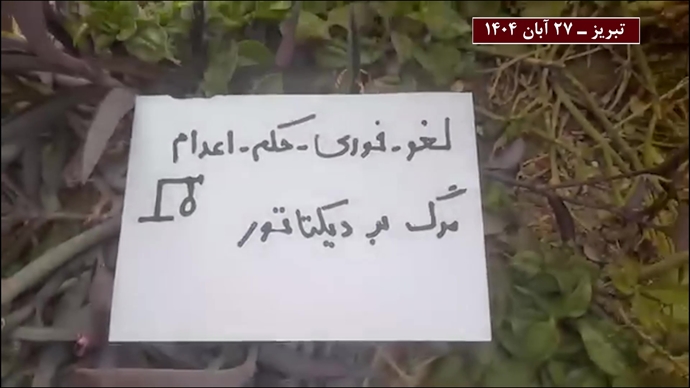 تبریز ــ ۲۷ آبان ۱۴۰۴
لغو - فوری - حکم - اعدام
مرگ بر دیکتاتور